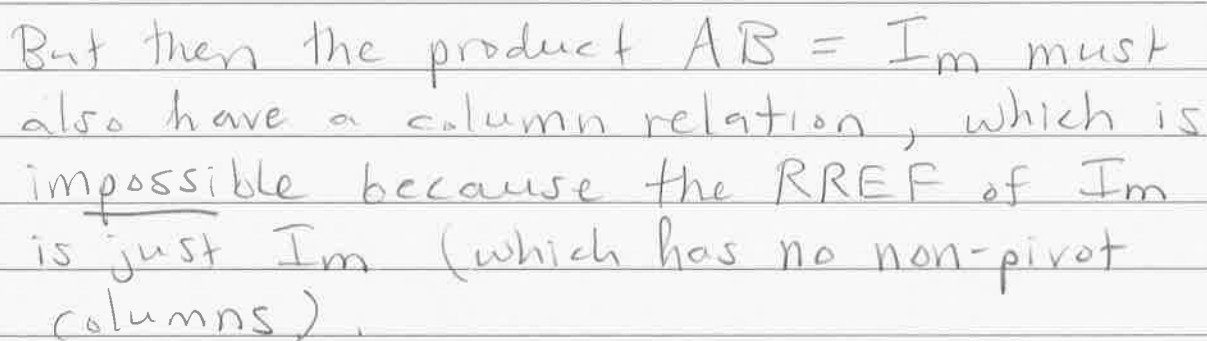 But then the product AB = Im must
also have a column relation, which is
impossible because the RREF of Im
is just Im (which has no non-pivot
columns).